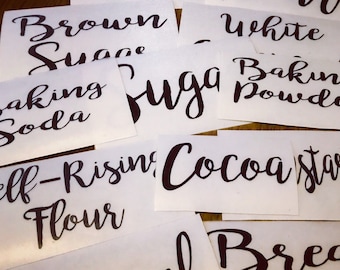 Brown
Sugar
White
Baking
Soda
Sugar
Baking
Powder
Self-Rising
Flour
Cocoa